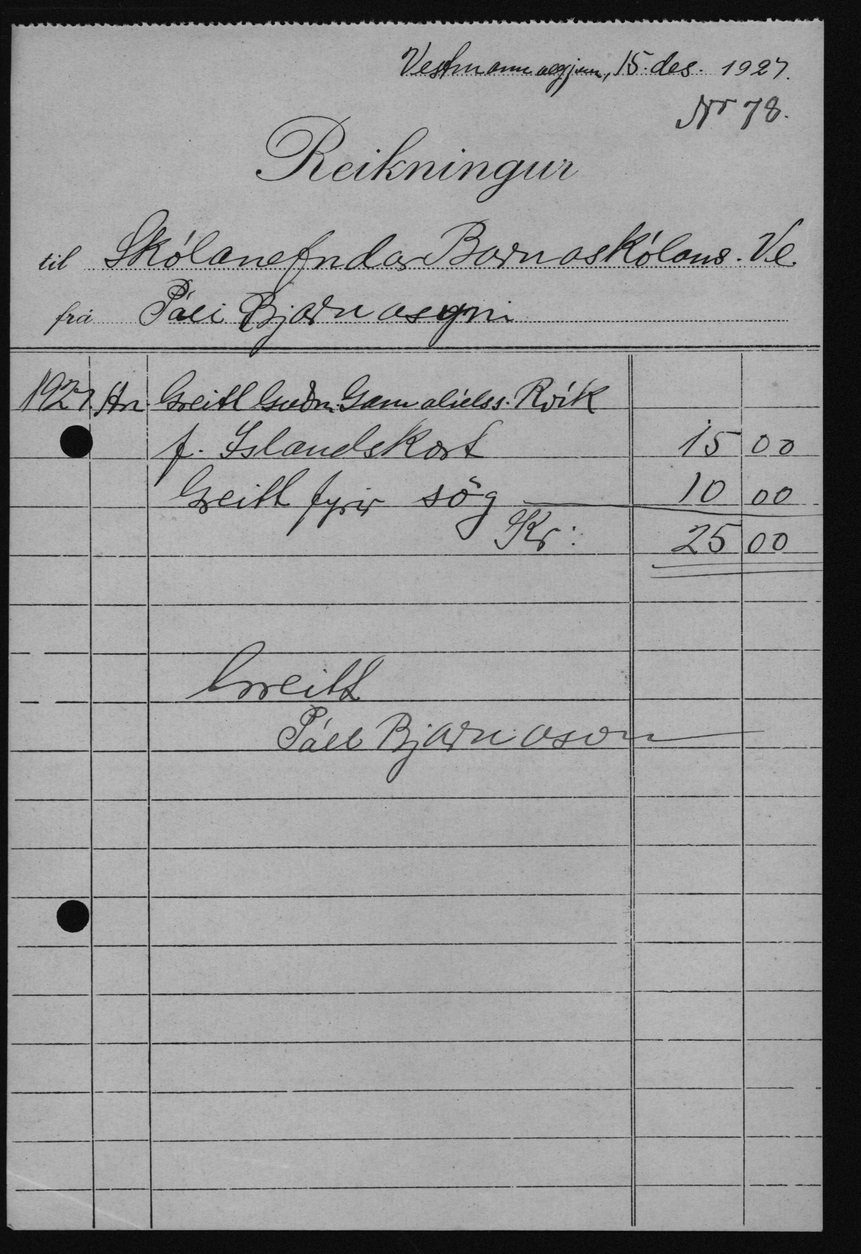 Vestmannaeyjum, 15. des. 1927.
Nr 78.
Reikningur
til Skólanefndar Barnaskólans. Ve.
frá Páli Bjarnasyni
1927 Greitt Guðm. Gamalíelss. Rvík
f. Íslandskort 15 00
Greitt fyrir sög 10 00
Kr: 25 00
Greitt
Páll Bjarnason